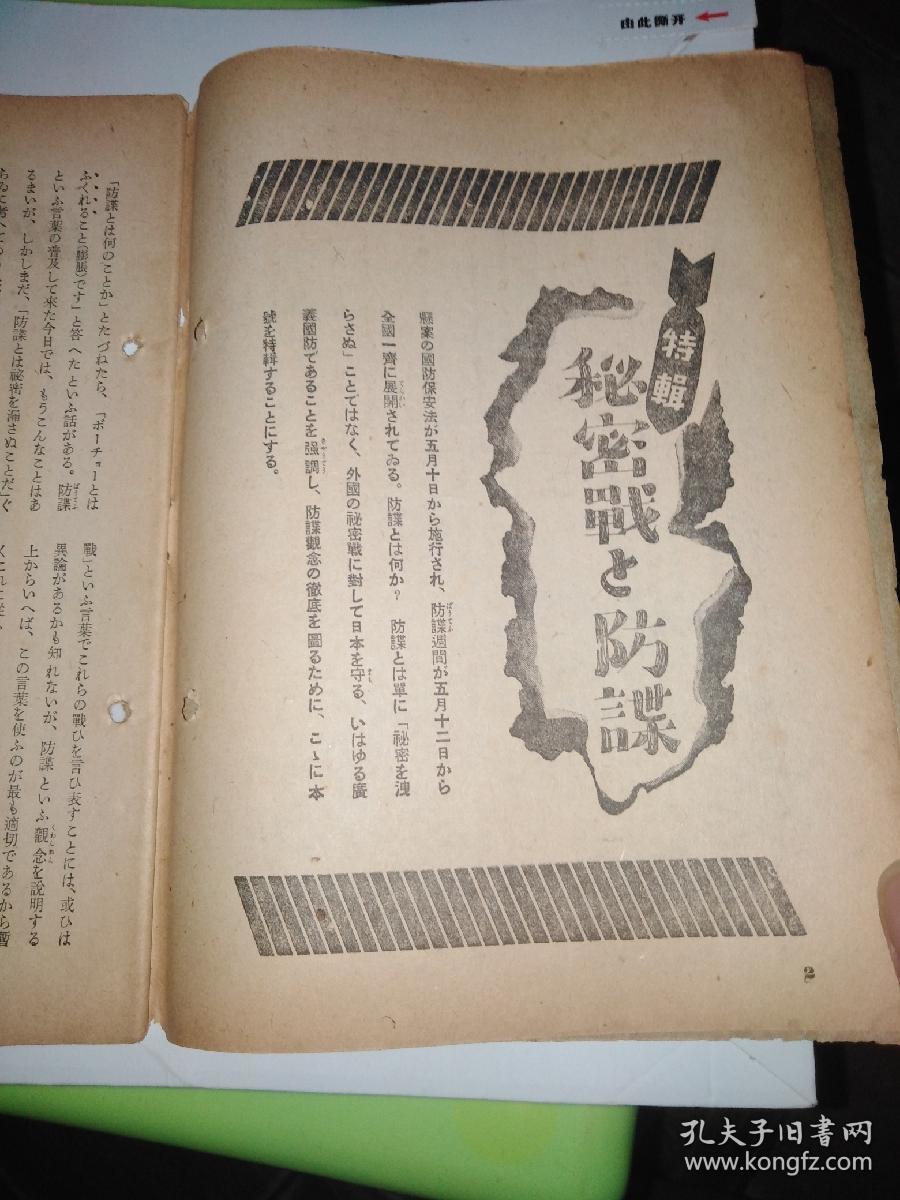 由此撕开
特輯
秘密戰と防諜
懸案の國防保安法が五月十日から施行され、防諜週間が五月十二日から
全國一齊に展開されてゐる。防諜とは何か? 防諜とは單に「祕密を洩
らさぬ」ことではなく、外國の祕密戰に對して日本を守る、いはゆる廣
義國防であることを强調し、防諜觀念の徹底を圖るために、こゝに本
號を特輯することにする。
2
「防諜とは何のことか」とたづねたら、「ボーチョーとは
ふくれること(膨脹)です」と答へたといふ話がある。防諜
といふ言葉の普及して來た今日では、もうこんなことはあ
るまいが、しかしまだ、「防諜とは祕密を漏さぬことだ」ぐ
戰」といふ言葉でこれらの戰ひを言ひ表すことには、或ひは
異論があるかも知れないが、防諜といふ觀念を說明する
上からいへば、この言葉を使ふのが最も適切であるから暫
孔夫子旧书网
www.kongfz.com